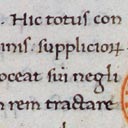 . Hic totus con
ims. supplicioꝝ
oceat sui negli
n rem tractare